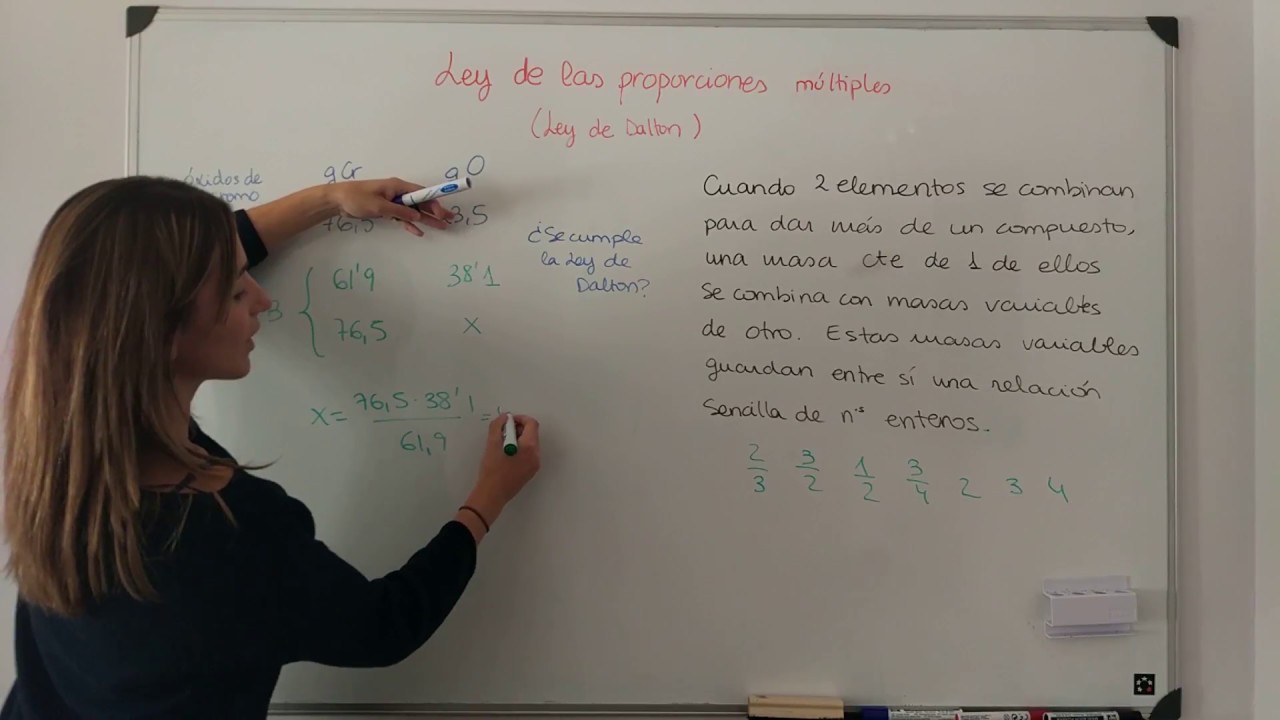 Ley de las proporciones múltiples
(Ley de Dalton)
óxidos de
gCr gO
76,5 3,5
3 { 61'9 38'1
76,5 x
x = 76,5 · 38'1 =
61,9
¿Se cumple
la Ley de
Dalton?
Cuando 2 elementos se combinan
para dar más de un compuesto,
una masa cte de 1 de ellos
se combina con masas variables
de otro. Estas masas variables
guardan entre sí una relación
sencilla de n.ˢ enteros.
2/3 3/2 1/2 3/4 2 3 4